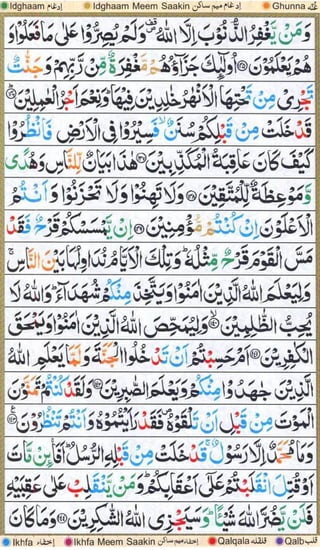 Idghaam ادغام Idghaam Meem Saakin ادغام میم ساکن Ghunna غنّہ
وَمَنْ يَّغْفِرُ الذُّنُوْبَ اِلَّا اللّٰهُ وَلَمْ يُصِرُّوْا عَلٰى مَا فَعَلُوْا وَ
هُمْ يَعْلَمُوْنَ ﴿۱۳۵﴾ اُولٰٓئِكَ جَزَآؤُهُمْ مَّغْفِرَةٌ مِّنْ رَّبِّهِمْ وَجَنّٰتٌ
تَجْرِىْ مِنْ تَحْتِهَا الْاَنْهٰرُ خٰلِدِيْنَ فِيْهَا وَنِعْمَ اَجْرُ الْعٰمِلِيْنَ ﴿۱۳۶﴾
قَدْ خَلَتْ مِنْ قَبْلِكُمْ سُنَنٌ فَسِيْرُوْا فِى الْاَرْضِ فَانْظُرُوْا
كَيْفَ كَانَ عَاقِبَةُ الْمُكَذِّبِيْنَ ﴿۱۳۷﴾ هٰذَا بَيَانٌ لِّلنَّاسِ وَهُدًى
وَّمَوْعِظَةٌ لِّلْمُتَّقِيْنَ ﴿۱۳۸﴾ وَلَا تَهِنُوْا وَلَا تَحْزَنُوْا وَاَنْتُمُ
الْاَعْلَوْنَ اِنْ كُنْتُمْ مُّؤْمِنِيْنَ ﴿۱۳۹﴾ اِنْ يَّمْسَسْكُمْ قَرْحٌ فَقَدْ
مَسَّ الْقَوْمَ قَرْحٌ مِّثْلُهٗ وَتِلْكَ الْاَيَّامُ نُدَاوِلُهَا بَيْنَ النَّاسِ
وَلِيَعْلَمَ اللّٰهُ الَّذِيْنَ اٰمَنُوْا وَيَتَّخِذَ مِنْكُمْ شُهَدَآءَ وَاللّٰهُ لَا
يُحِبُّ الظّٰلِمِيْنَ ﴿۱۴۰﴾ وَلِيُمَحِّصَ اللّٰهُ الَّذِيْنَ اٰمَنُوْا وَيَمْحَقَ
الْكٰفِرِيْنَ ﴿۱۴۱﴾ اَمْ حَسِبْتُمْ اَنْ تَدْخُلُوا الْجَنَّةَ وَلَمَّا يَعْلَمِ اللّٰهُ
الَّذِيْنَ جٰهَدُوْا مِنْكُمْ وَيَعْلَمَ الصّٰبِرِيْنَ ﴿۱۴۲﴾ وَلَقَدْ كُنْتُمْ تَمَنَّوْنَ
الْمَوْتَ مِنْ قَبْلِ اَنْ تَلْقَوْهُ فَقَدْ رَاَيْتُمُوْهُ وَاَنْتُمْ تَنْظُرُوْنَ ﴿۱۴۳﴾
وَمَا مُحَمَّدٌ اِلَّا رَسُوْلٌ قَدْ خَلَتْ مِنْ قَبْلِهِ الرُّسُلُ اَفَا۟ئِنْ مَّاتَ
اَوْ قُتِلَ انْقَلَبْتُمْ عَلٰٓى اَعْقَابِكُمْ وَمَنْ يَّنْقَلِبْ عَلٰى عَقِبَيْهِ
فَلَنْ يَّضُرَّ اللّٰهَ شَيْئًا وَسَيَجْزِى اللّٰهُ الشّٰكِرِيْنَ ﴿۱۴۴﴾ وَمَا كَانَ
Ikhfa اخفاء Ikhfa Meem Saakin اخفاء میم ساکن Qalqala قلقلہ Qalb قلب